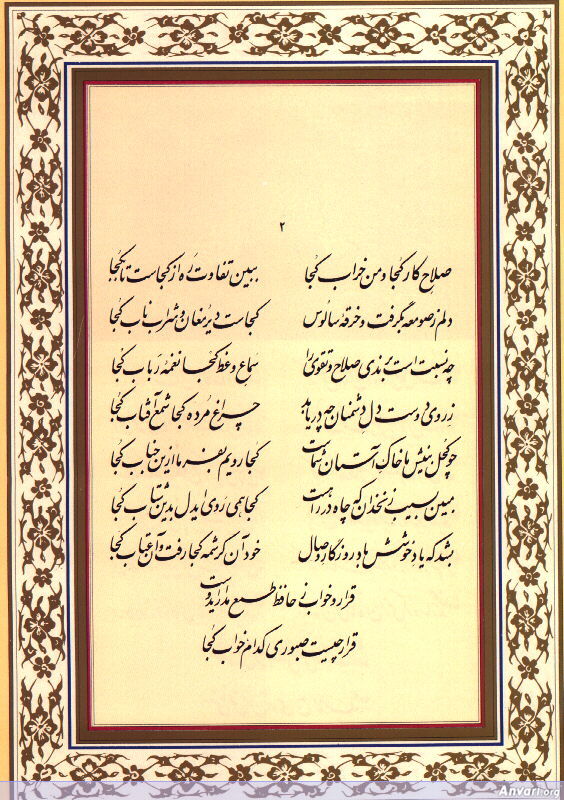 ۲
صلاح کار کجا و من خراب کجا ببین تفاوت ره از کجاست تا بکجا
دلم ز صومعه بگرفت و خرقهٔ سالوس کجاست دیر مغان و شراب ناب کجا
چه نسبت است برندی صلاح و تقوی را سماع وعظ کجا نغمهٔ رباب کجا
ز روی دوست دل دشمنان چه دریابد چراغ مرده کجا شمع آفتاب کجا
چو کحل بینش ما خاک آستان شماست کجا رویم بفرما ازین جناب کجا
مبین بسیب زنخدان که چاه در راهست کجا همی روی ایدل بدین شتاب کجا
بشد که یاد خوشش باد روزگار وصال خود آن کرشمه کجا رفت و آن عتاب کجا
قرار و خواب ز حافظ طمع مدار ایدوست
قرار چیست صبوری کدام خواب کجا
Anvari.org